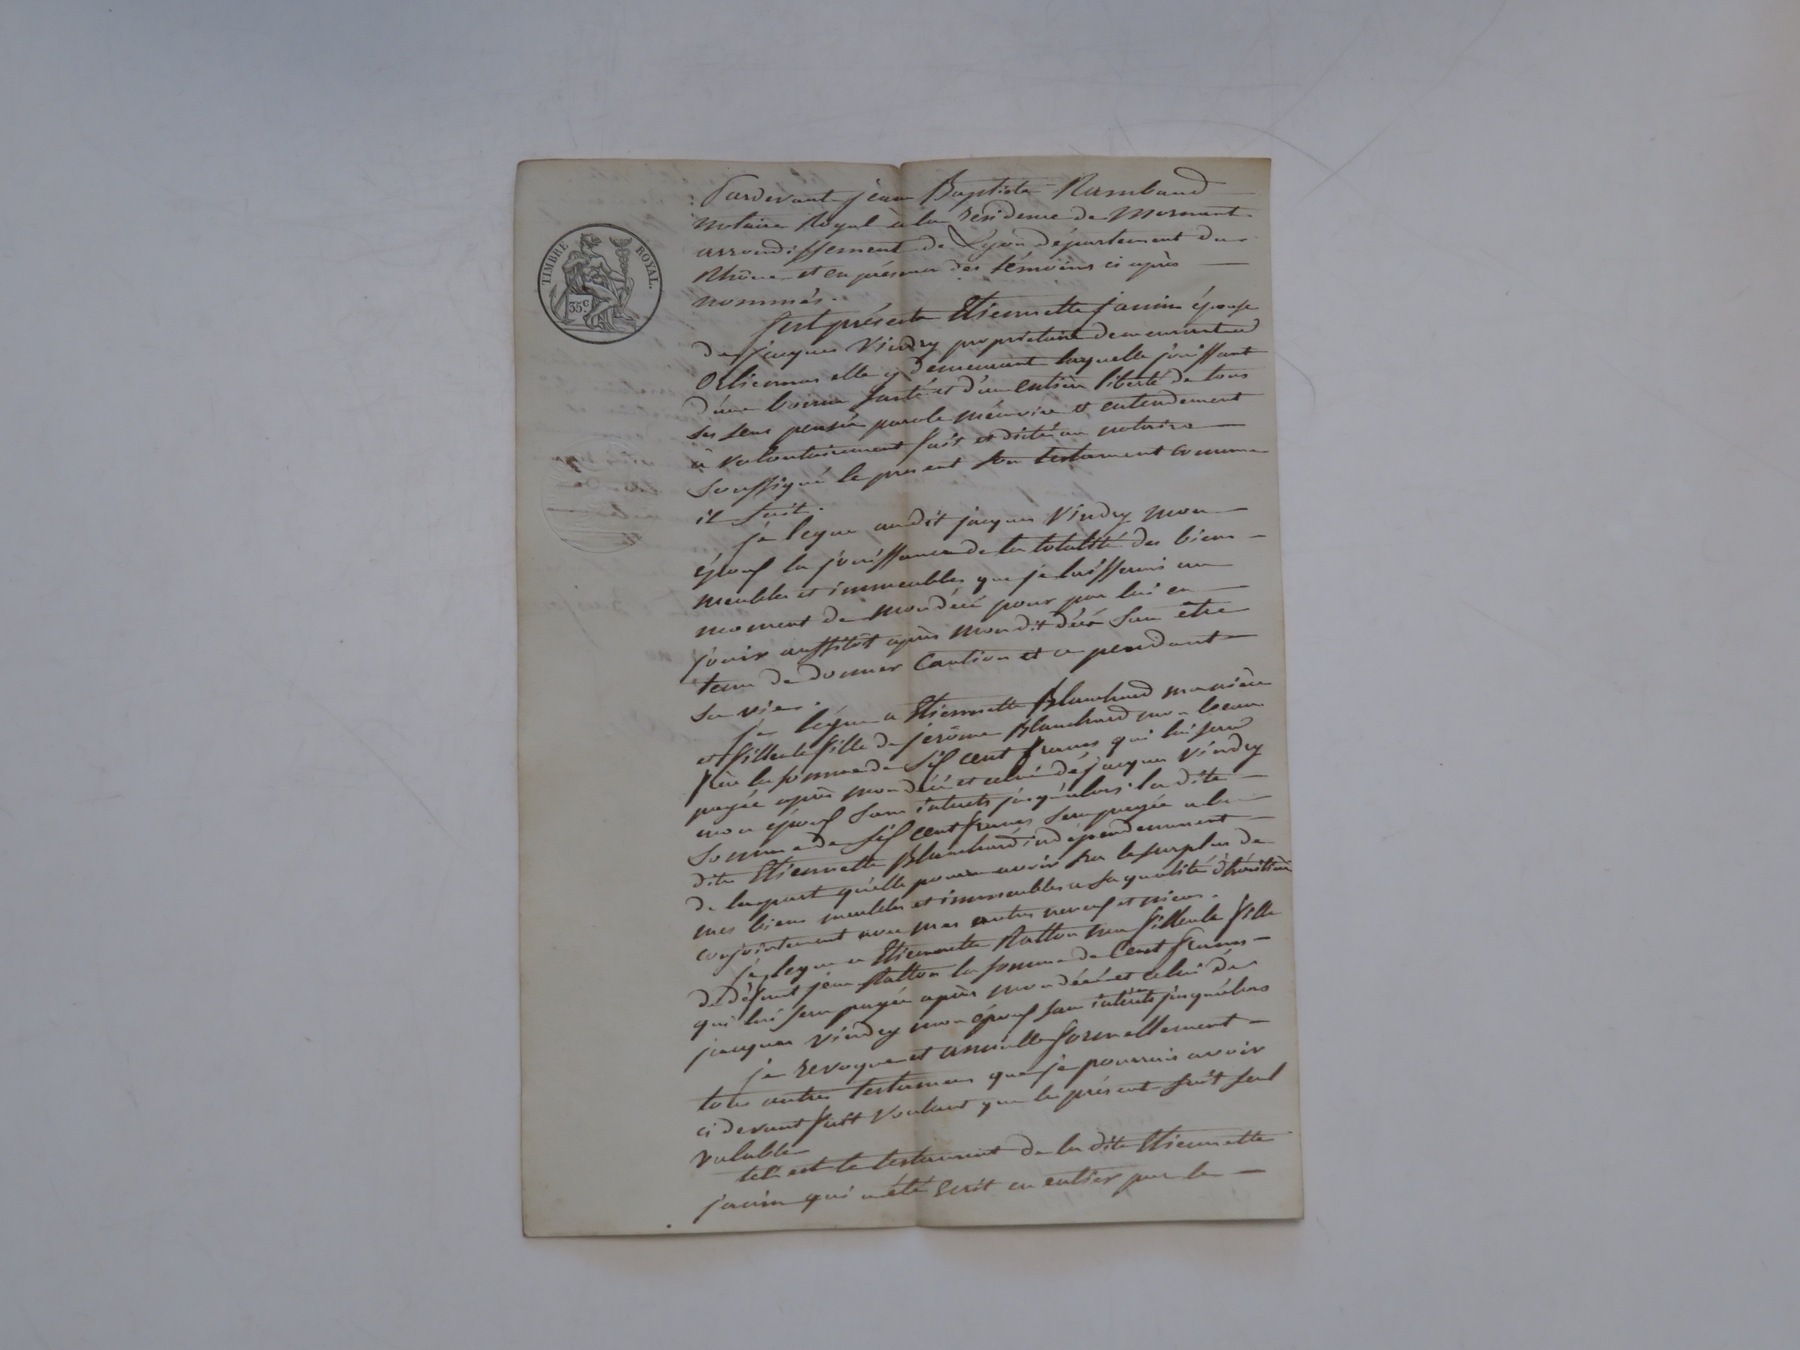 TIMBRE ROYAL.
35 c.
Pardevant jean Baptiste Rambaud
notaire Royal à la résidence de Mornant
arrondissement de Lyon département du
Rhône et en présence des témoins ci après
nommés.
fut présente Etiennette janin épouse
de jacques Vindry propriétaire demeurant a
Orliennas elle y demeurant laquelle jouissant
d'une bonne santé et d'une entière liberté de tous
ses sens pensée parole mémoire et entendement
à volontairement fait et dicté au notaire
soussigné le present son testament comme
il suit.
je legue audit jacques Vindry mon
époux la jouissance de la totalité des biens
meubles et immeubles que je laisserai au
moment de mon décé pour par lui en
jouir aussitôt après mon dit décé san être
tenu de donner caution et ce pendant
sa vie.
je legue a Etiennette Blanchard ma nièce
et filleule fille de jerôme Blanchard mon beau
frère la somme de six cent francs qui lui sera
payée après mon décé et celui de jacques Vindry
mon époux sans interets jusqu'alors la dite
somme de six cent francs sera payée a la
dite Etiennette Blanchard indépendemment
de la part qu'elle pourra avoir sur le surplus de
mes biens meubles et immeubles a sa qualité d'héritière
conjointement avec mes autres neveux et nieces.
je legue a Etiennette Ratton ma filleule fille
de défunt jean Ratton la somme de cent francs
qui lui sera payée après mon décé et celui de
jacques Vindry mon époux san intérêts jusqu'alors
je revoque et annulle formellement
tous autres testamens que je pourrais avoir
ci devant fait voulant que le présent soit seul
valable
tel est le testament de la dite Etiennette
janin qui a été écrit en entier par le